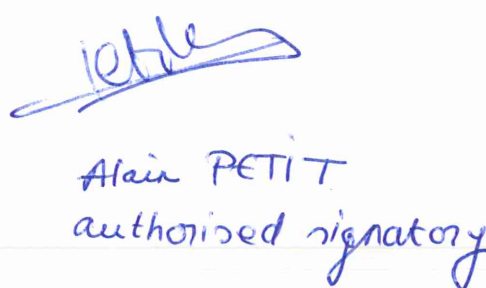 Alain PETIT
authorised signatory